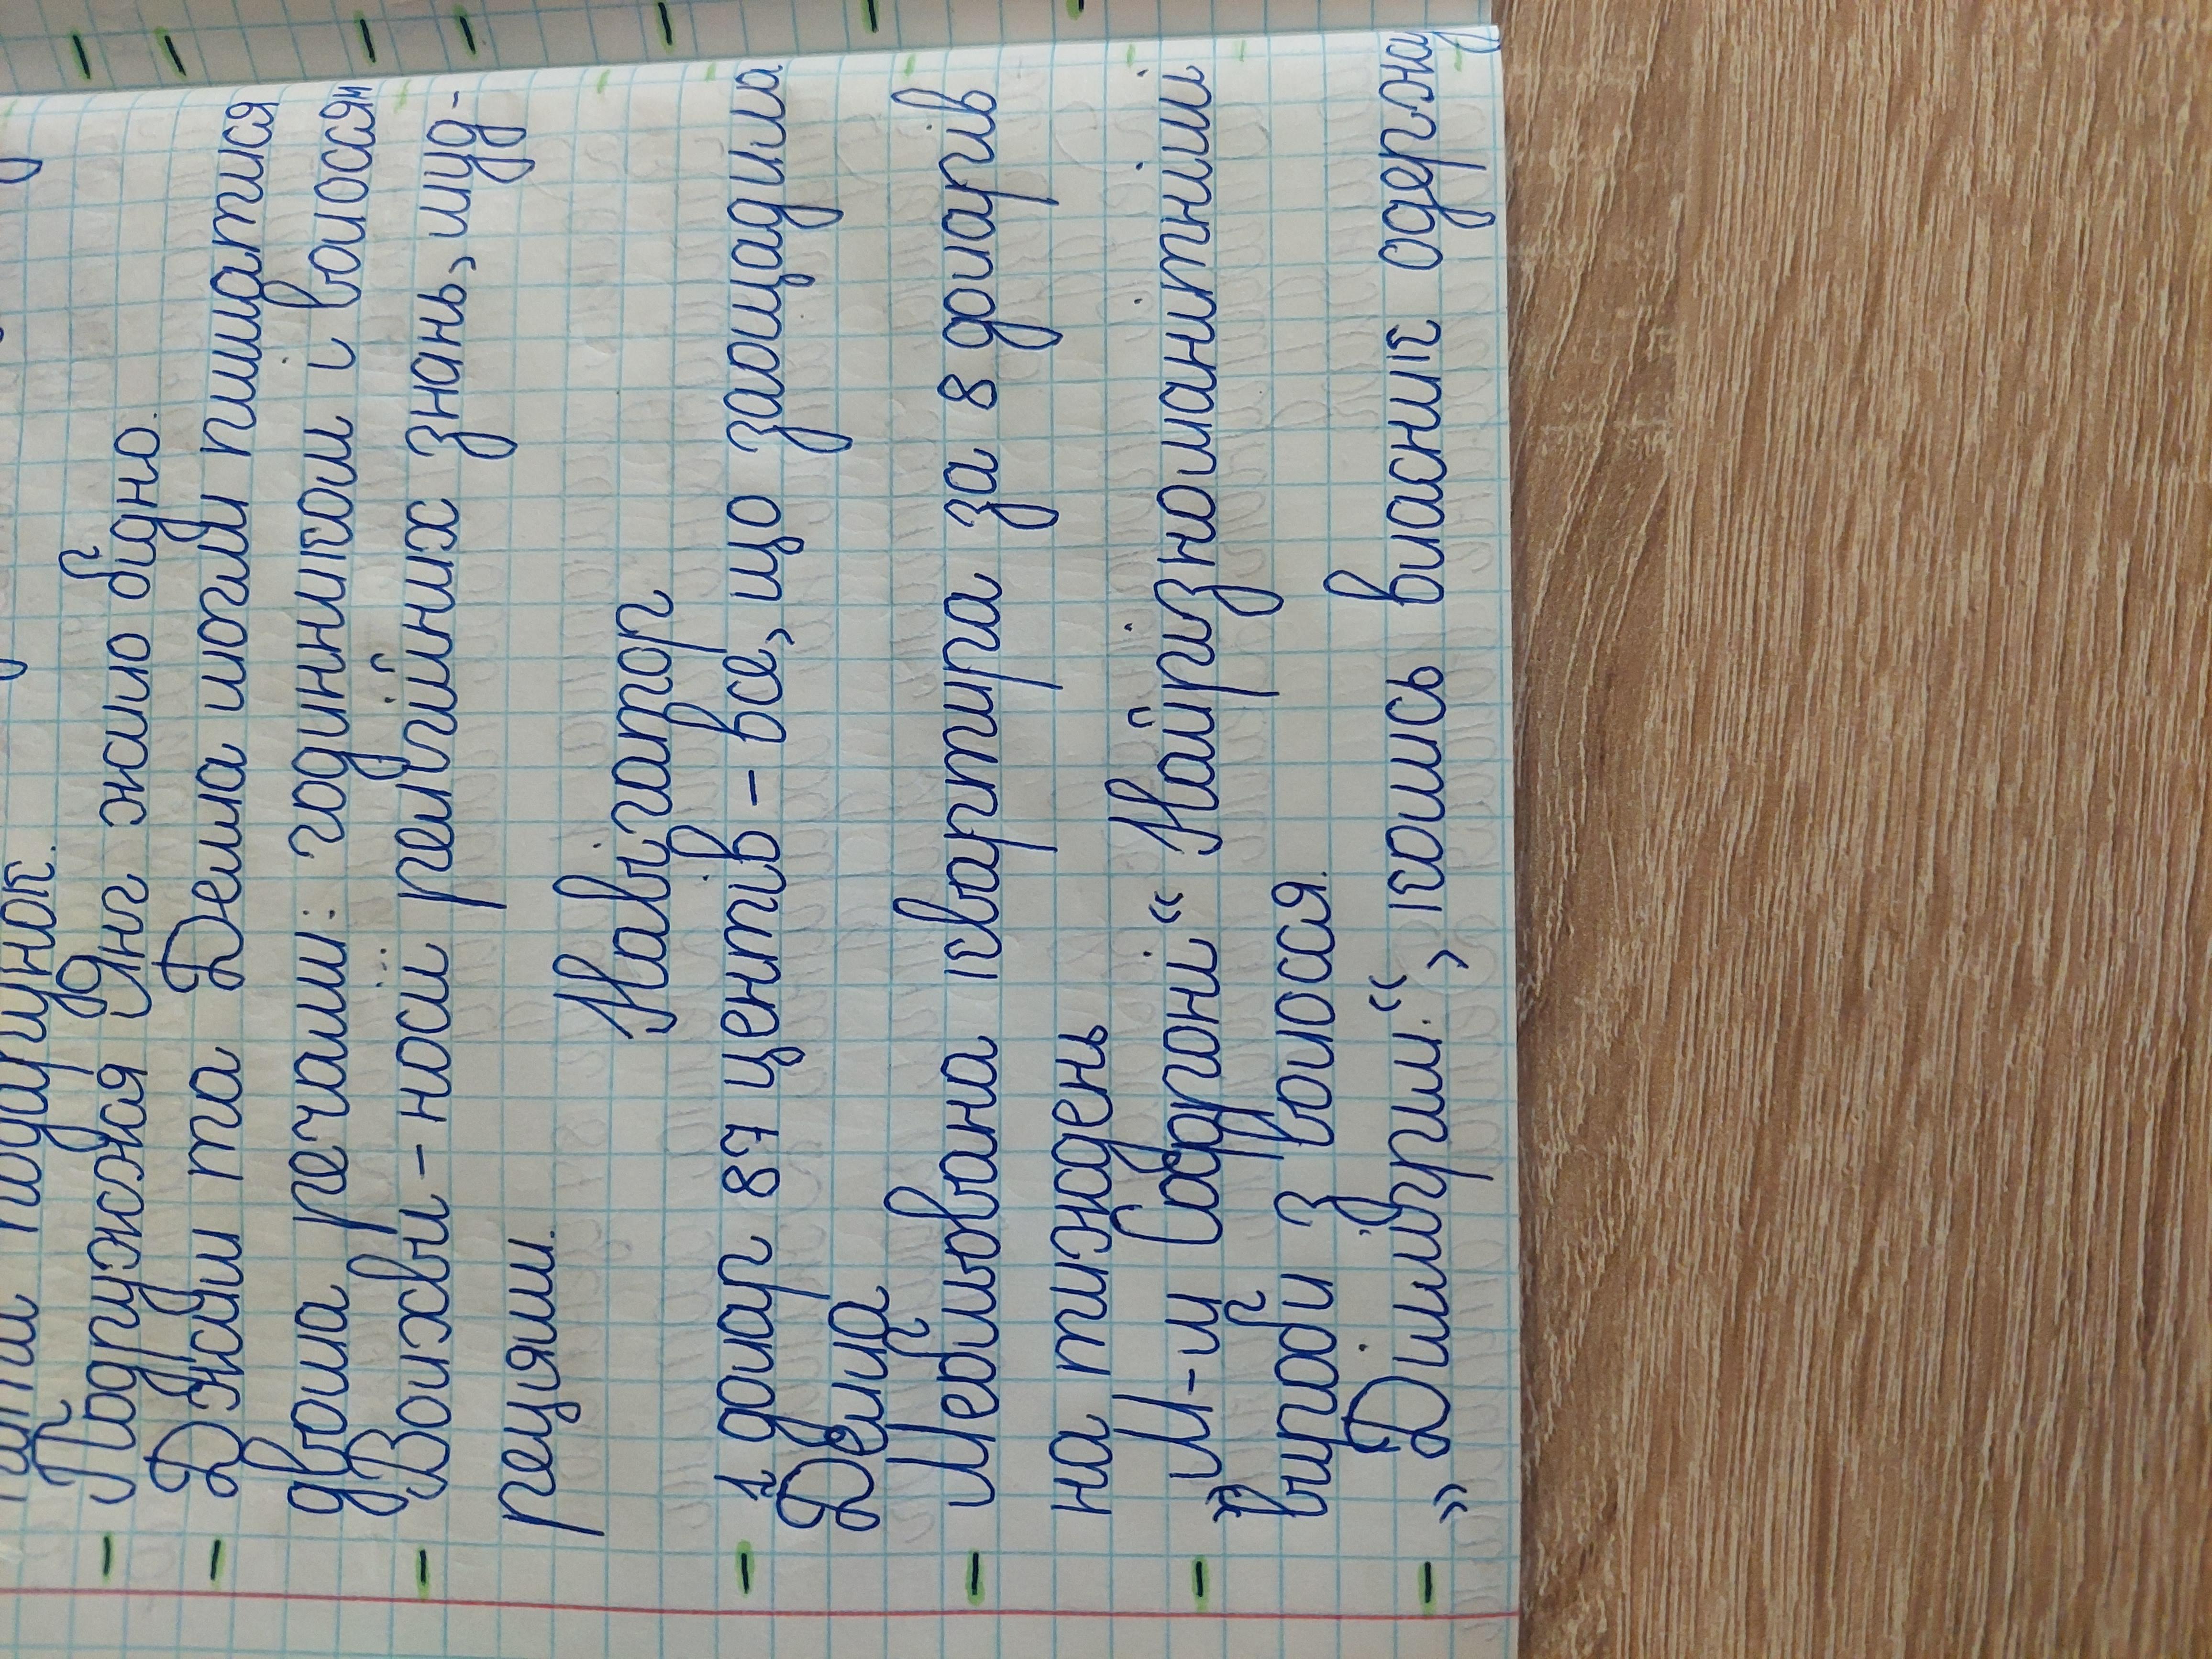 подарунок.
Подружжя Янг жило бідно.
Джим та Делла могли пишатися
двома речами: годинником і волосям
Волхви - носії релігійних знань, муд-
рецями.
Навігатор
1 долар 87 центів - все, що заощадила
Делла
Мебльована квартира за 8 доларів
на тиждень
"М-м Софроні" Найрізноманітніші
вироби з волосся.
"Діллінгри.", колись власник одержу